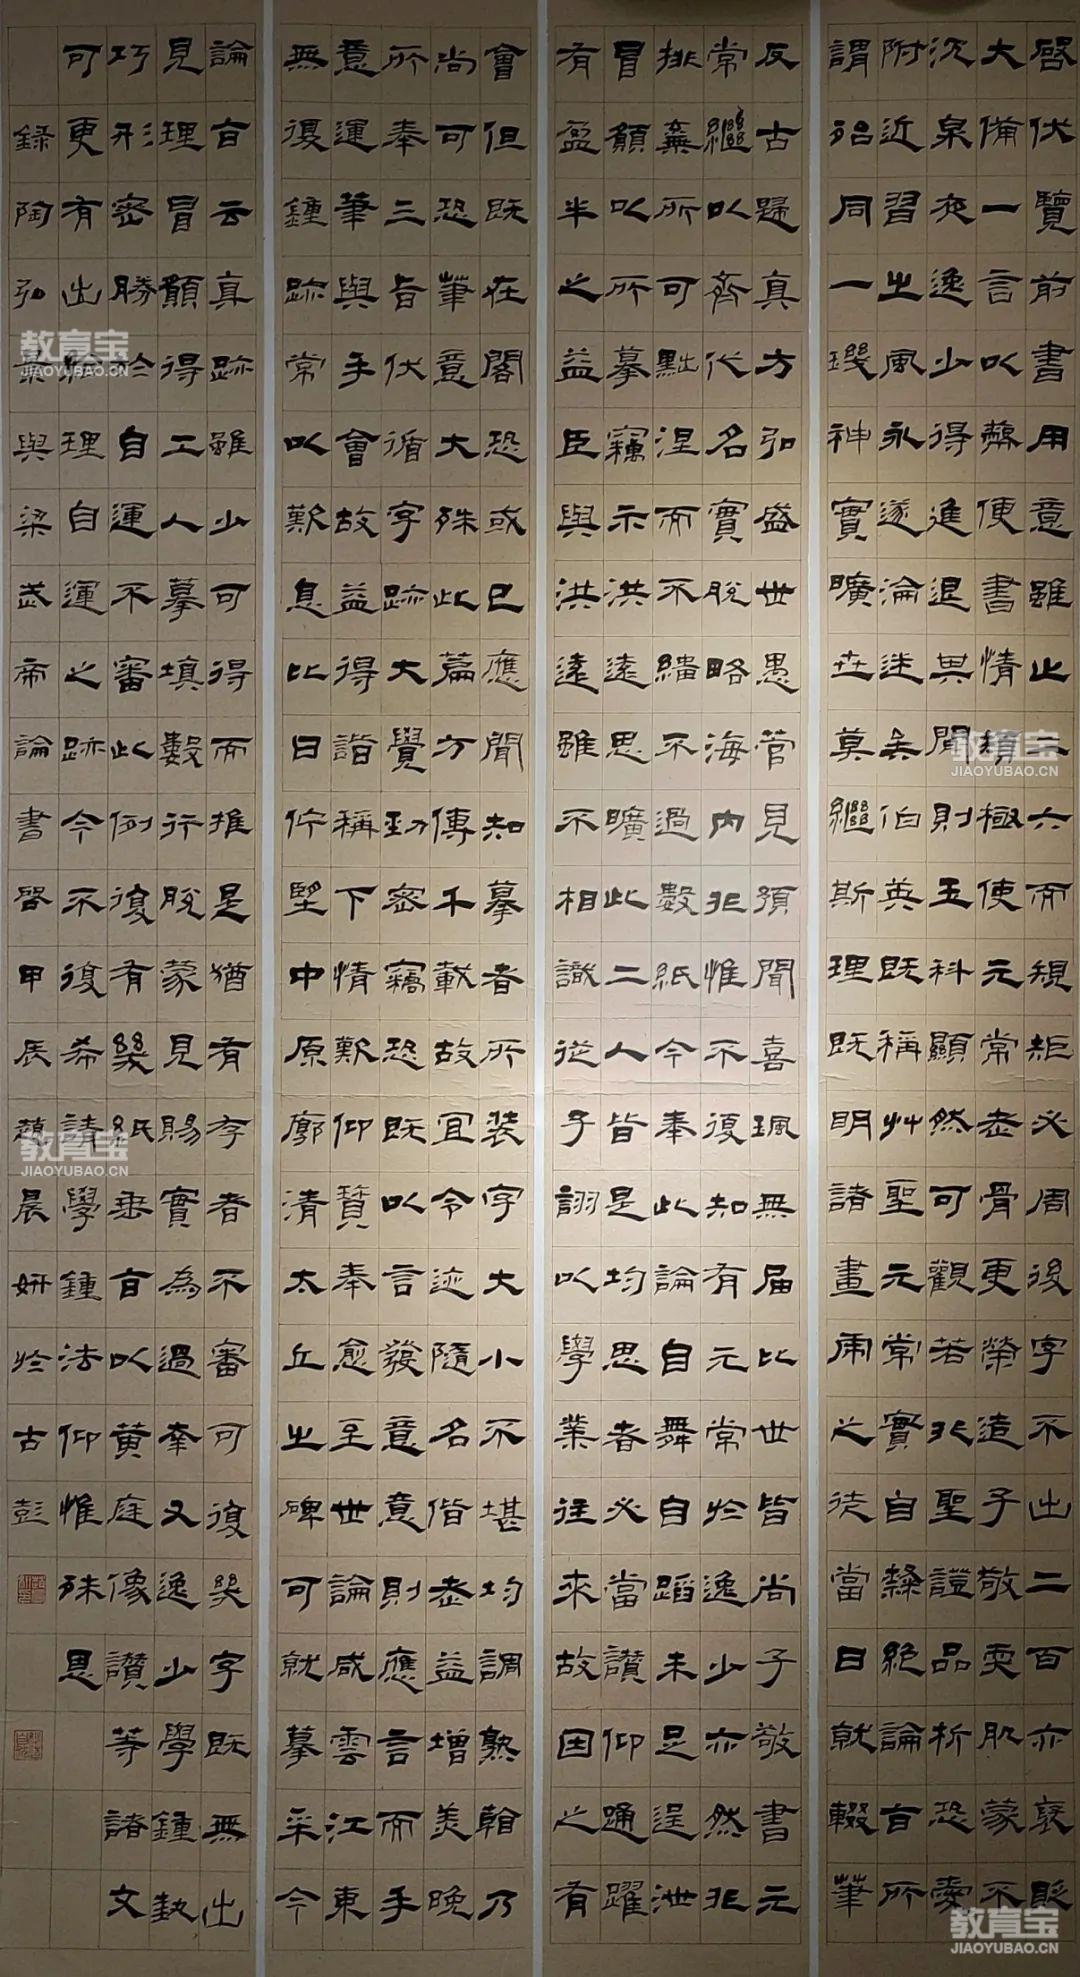 啓伏覽前書用意雖止二六而規矩必周後字不出二百亦褒貶
大備一言以蔽便書情頓極使元常老骨更榮造子敬奕肌蒙不
沉泉夜逸少得進退其間則玉科顯然可觀若非聖證品析恐愛
附近習之風永遂淪迷矣伯英既稱艸聖元常實自隸絕論旨所
謂殆同一璣神實曠世莫繼斯理既明諸畫虎之徒當日就輟筆
反古歸真方弘盛世愚管見預聞喜珮無屆比世皆尚子敬書元
常繼以齊代名實脫略海內非惟不復知有元常於逸少亦然非
排棄所可點涅而不繢不過數紙今奉此論自舞自蹈未足逞泄
冒願以所摹竊示洪遠思曠此二人皆是均思者必當讚仰踊躍
有盈半之益臣與洪遠雖不相識從子詡以學業往來故因之有
會但既在閣恐或已應聞知摹者所裝字大小不堪均調熟翰乃
尚可恐筆意大殊此篇方傳千載故宜令迹隨名偕老益增美晚
所奉三旨伏循字跡大覺勁密竊恐既以言發意意則應言而手
意運筆與手會故益得諧稱下情歎仰贊奉愈至世論咸雲江東
無復鍾跡常以歎息比日佇望中原廓清太丘之碑可就摹采今
論旨云真跡雖少可得而推是猶有存者不審可復幾字既無出
見理冒願得工人摹填數行脫蒙見賜實為過幸又逸少學鍾勢
巧形密勝於自運不審此例復有幾紙垂旨以黃庭像讚等諸文
可更有出給理自運之跡今不復希請學鍾法仰惟殊恩
錄陶弘景與梁武帝論書啓甲辰趙晨妍於古彭
教育宝
JIAOYUBAO.CN
教育宝
JIAOYUBAO.CN
教育宝
JIAOYUBAO.CN
教育宝
JIAOYUBAO.CN